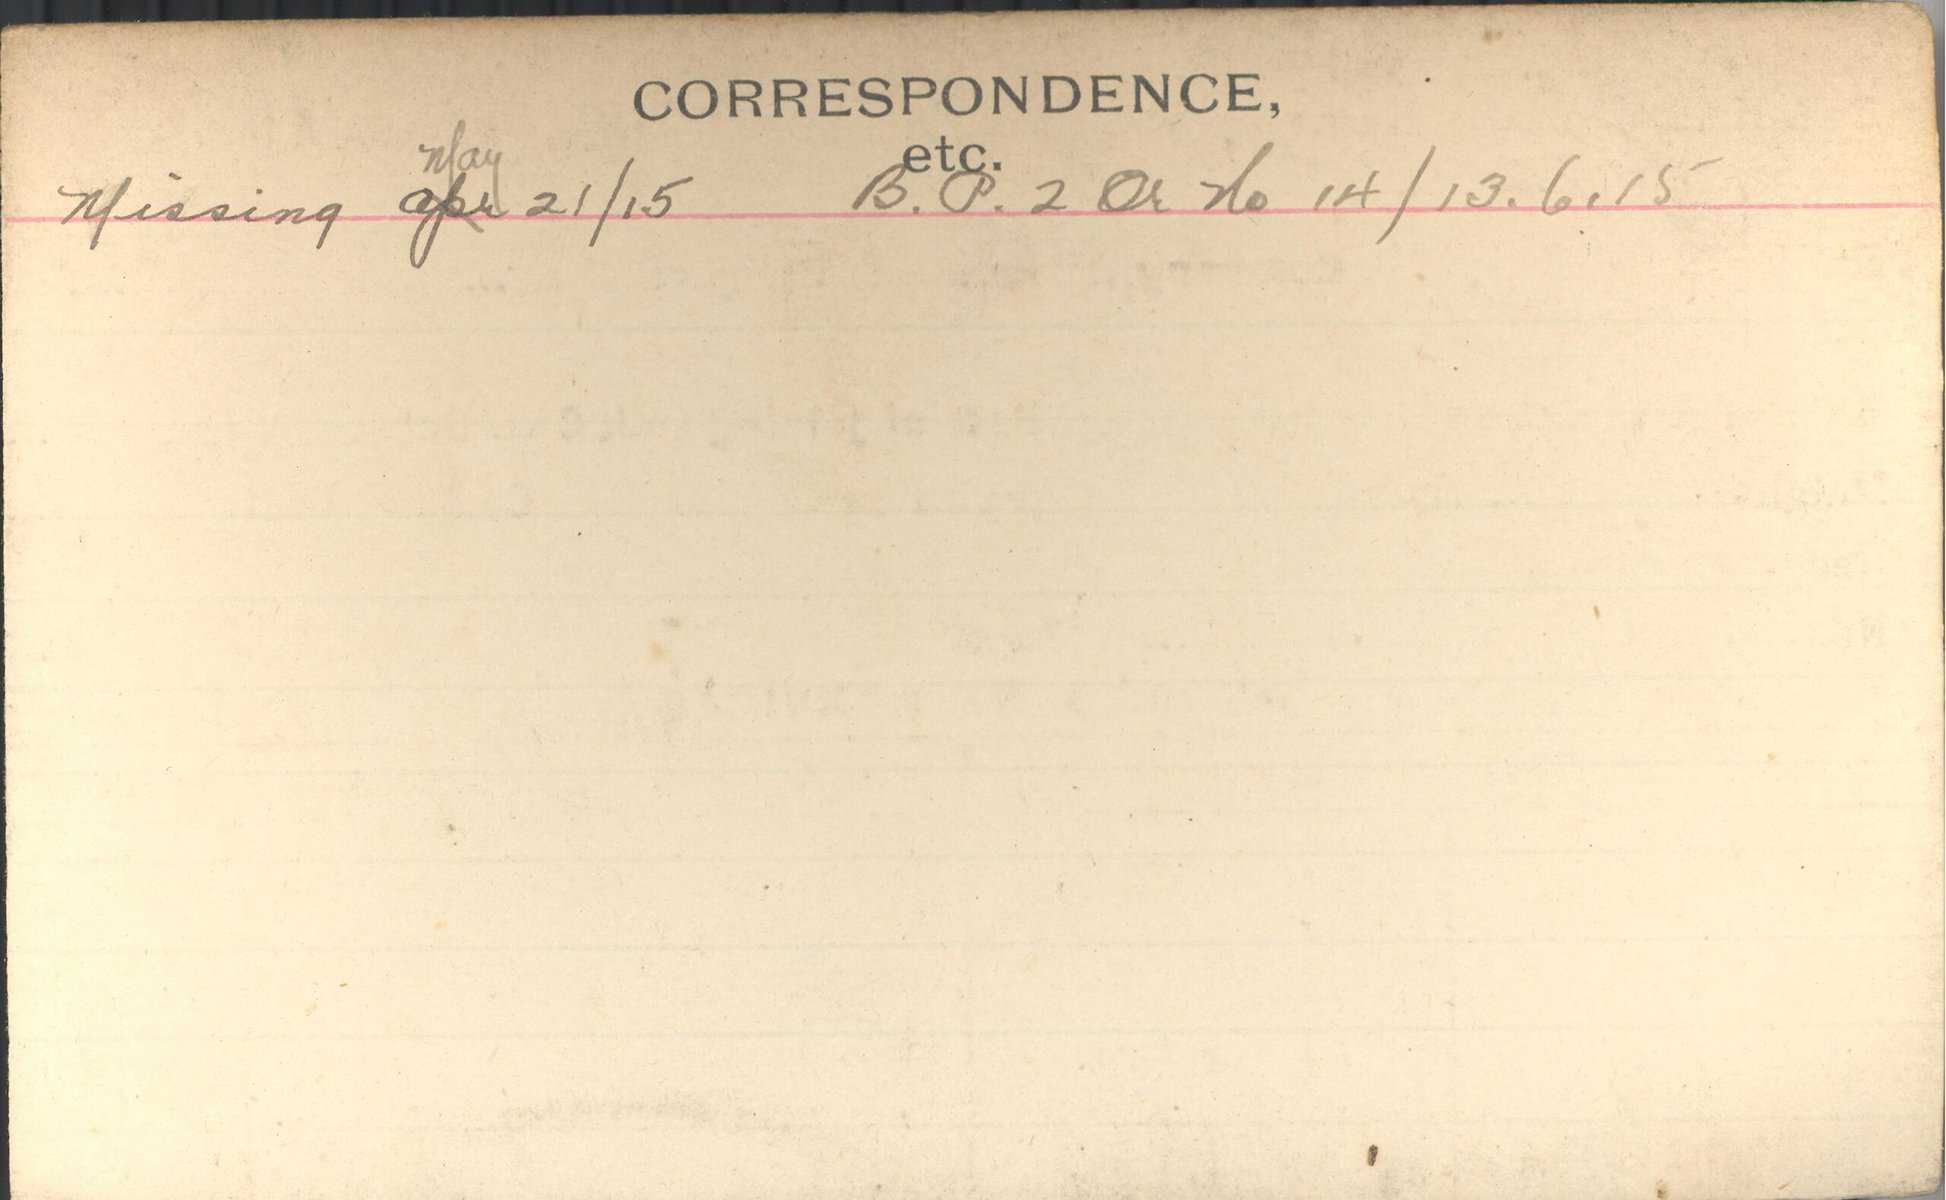 CORRESPONDENCE,
etc.
May
Missing Apr 21/15 B. P. 2 Or No 14/13.6.15